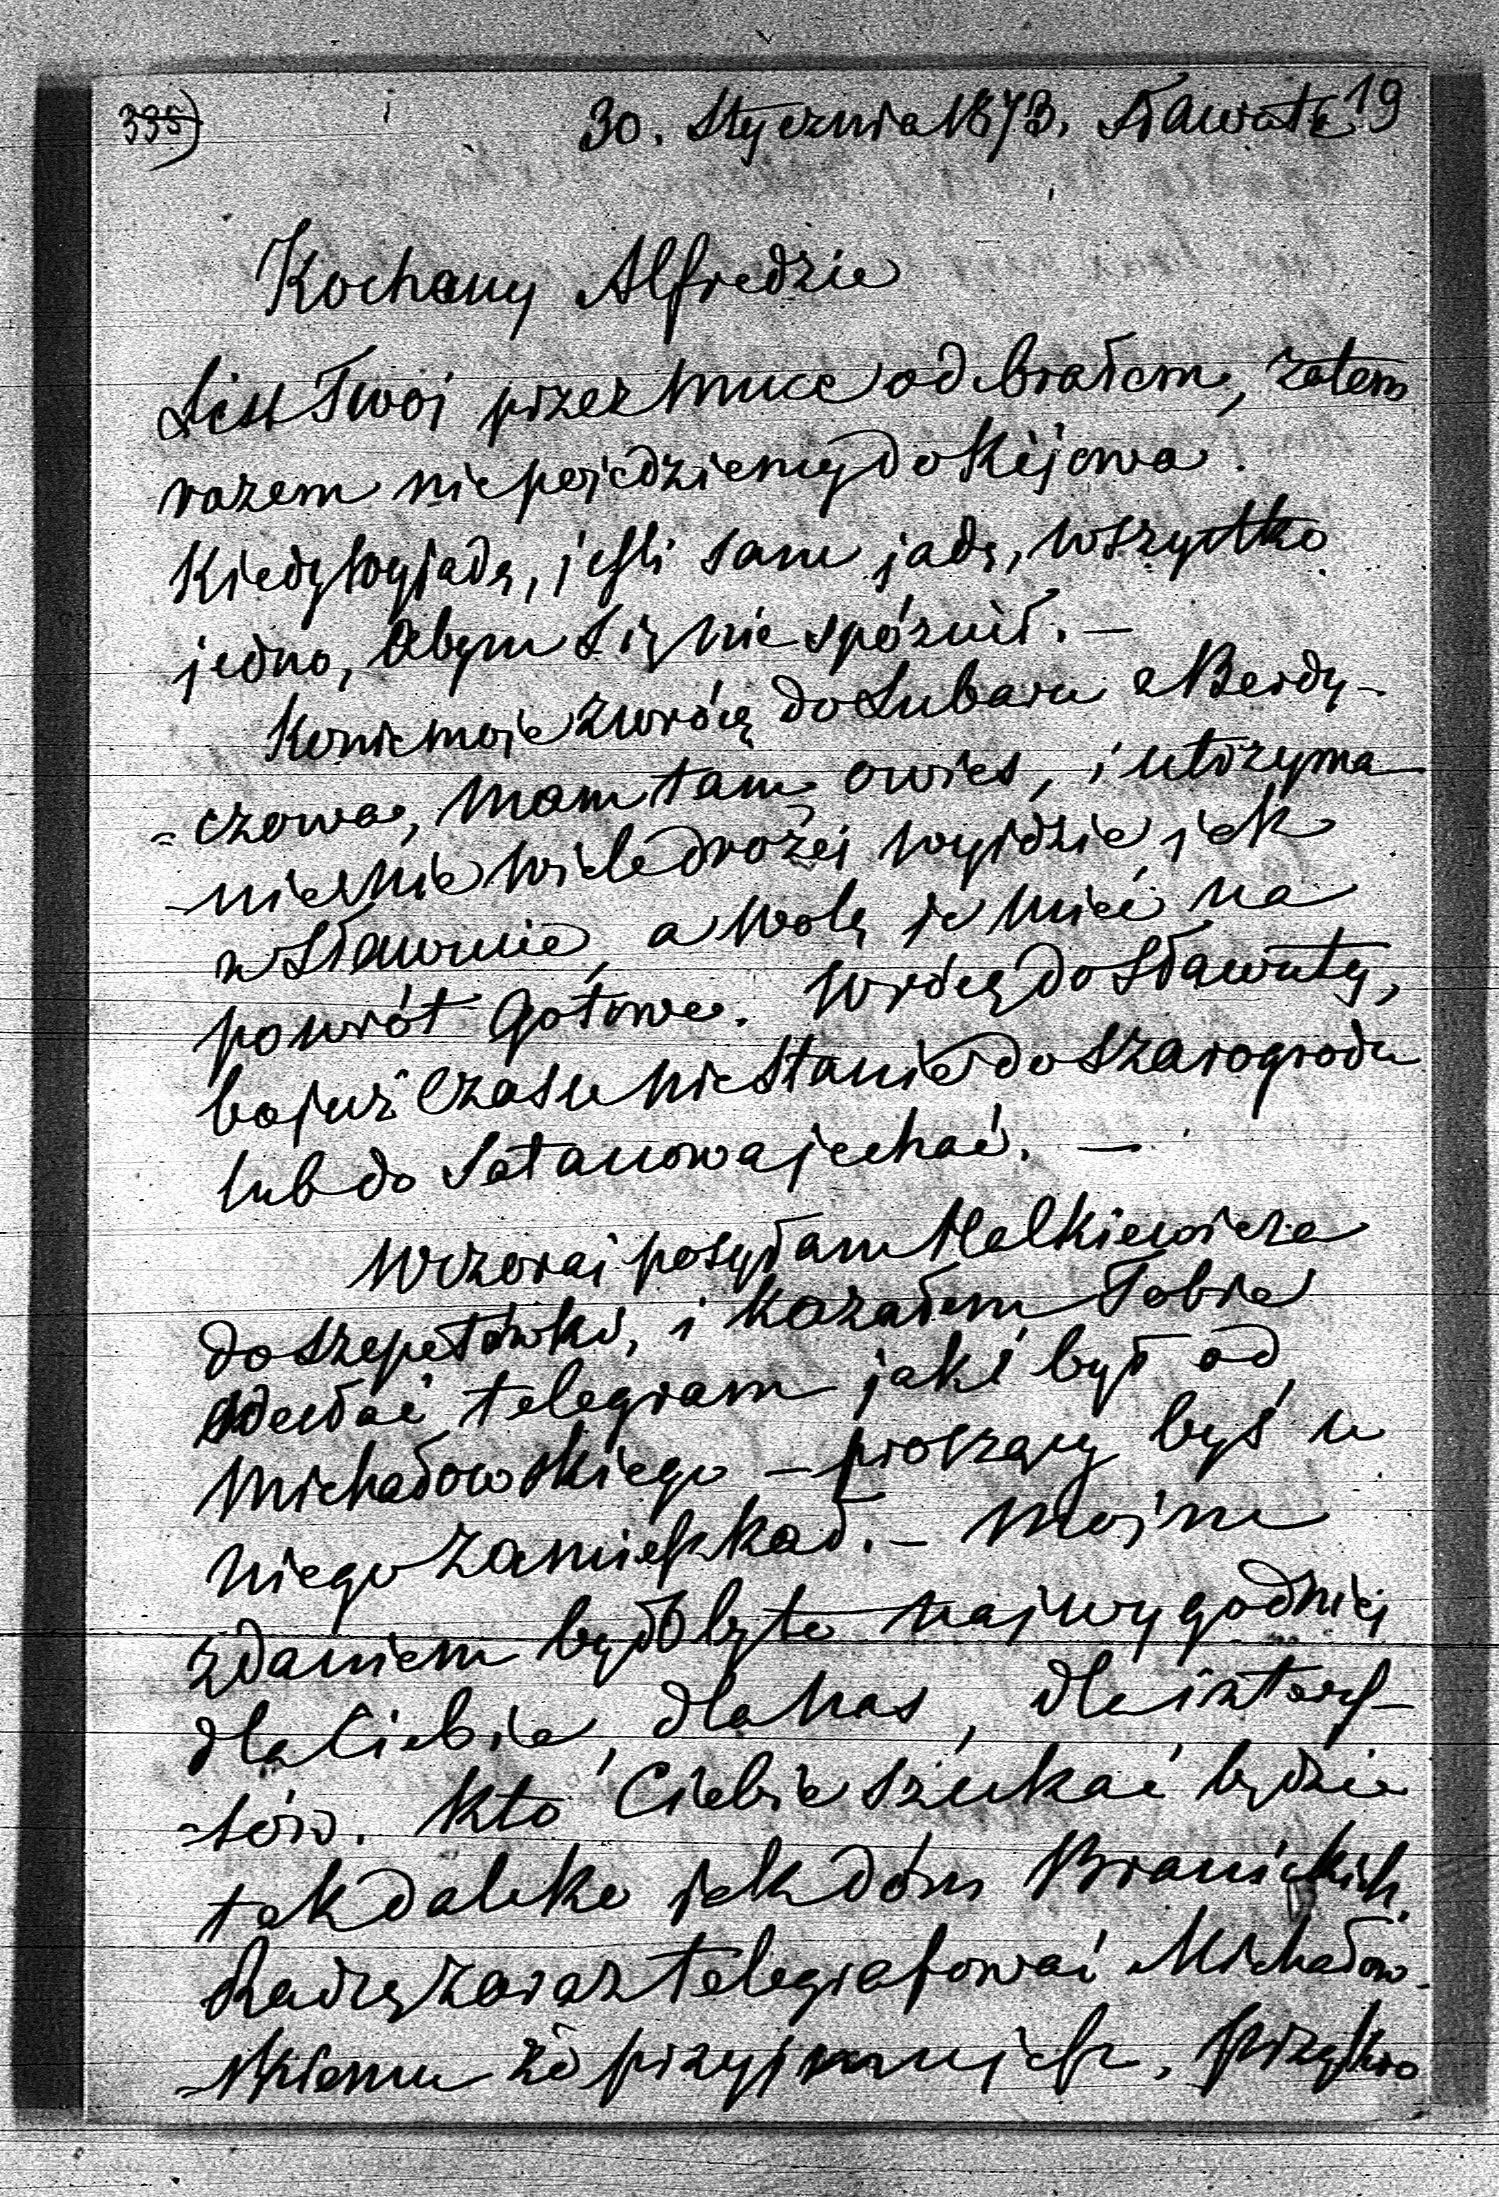 335) 30. Stycznia 1873. Sławuta 19
Kochany Alfredzie
List Twój przez Muce odebrałem, zatem
razem nie pojedziemy do Kijowa.
Kiedy wyjadę, jeśli sam jadę, wszystko
jedno, abym się nie spóźnił. —
Konie moje zwrócę do Lubaru z Berdy-
-czowa, mam tam owies, i utrzyma-
-nie nie wiele drożej wyjdzie jak
w Sławucie, a wolę je mieć na
powrót gotowe. Wrócę do Sławuty,
bo już czasu nie stanie do Szarogrodu
lub do Satanowa jechać. —
Wczoraj posyłam Malkiewicza
do Szepetówki, i kazałem Tobie
odesłać telegram jaki był od
Michałowskiego — proszący byś u
niego zamieszkał. — Mojem
zdaniem byłoby to najwygodniej
dla Ciebie, dla nas, dla interes-
-sów. Kto Ciebie szukać będzie
tak daleko jak dóm Branickich.
Radzę zaraz telegrafować Michałow-
-skiemu że przyjmujesz. Przykro